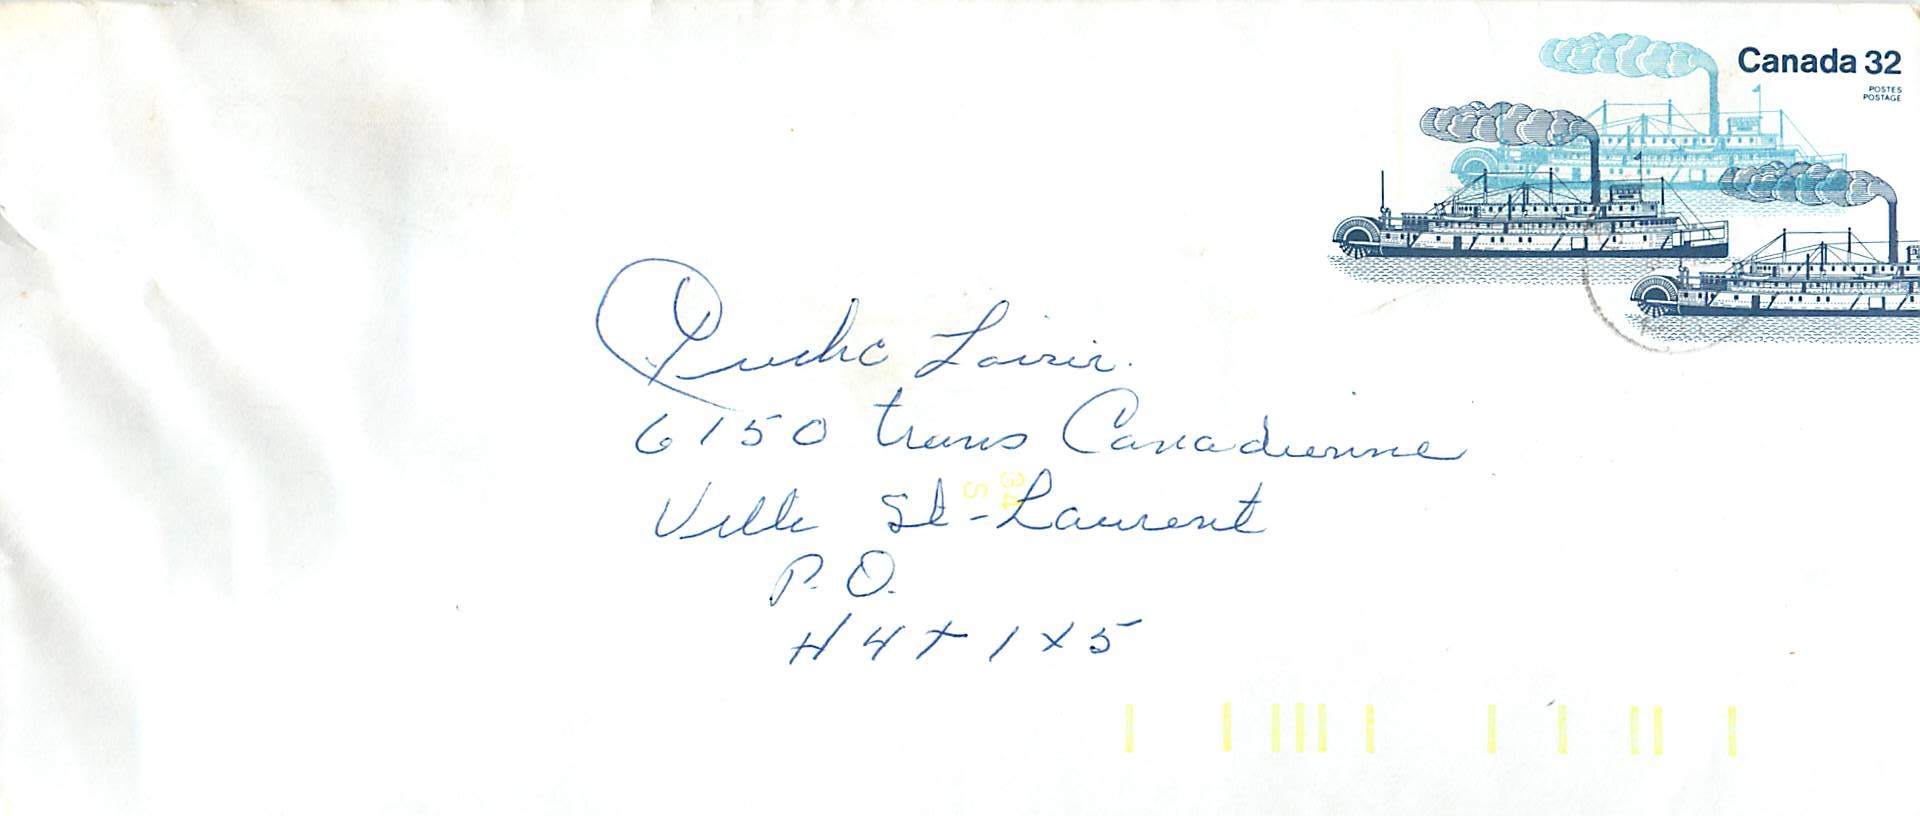 Canada 32
POSTES
POSTAGE
Loisir.
6150 trans Canadienne
34
S
Ville St-Laurent
P.Q.
H4T 1X5